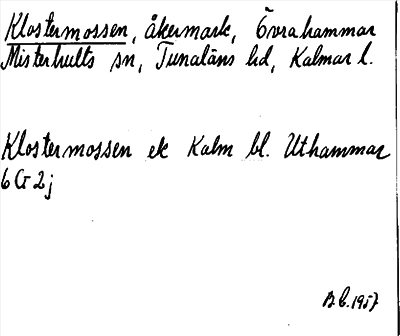 Klostermossen, åkermark, Övrahammar
Misterhults sn, Tunaläns hd, Kalmar l.
Klostermossen ek Kalm bl. Uthammar
6 G 2 j
B.b. 1957